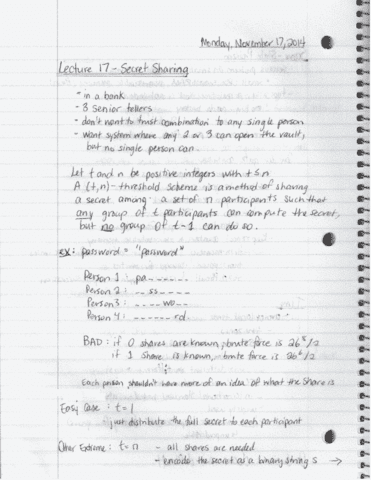 Monday, November 17, 2014
Lecture 17 - Secret Sharing
- in a bank
- 3 senior tellers
- don't want to trust combination to any single person
- want system where any 2 or 3 can open the vault,
but no single person can.
Let t and n be positive integers with t ≤ n
A (t,n)-threshold scheme is a method of sharing
a secret among a set of n participants such that
any group of t participants can compute the secret,
but no group of t-1 can do so.
EX: password = "password"
Person 1: pa------
Person 2: --ss----
Person 3: ----wo--
Person 4: ------rd
BAD: if 0 shares are known, brute force is 26⁸/2
if 1 share is known, brute force is 26⁶/2
Each person shouldn't have more of an idea of what the share is
Easy Case: t=1
just distribute the full secret to each participant
Other Extreme: t=n - all shares are needed
- encode the secret as a binary string S →